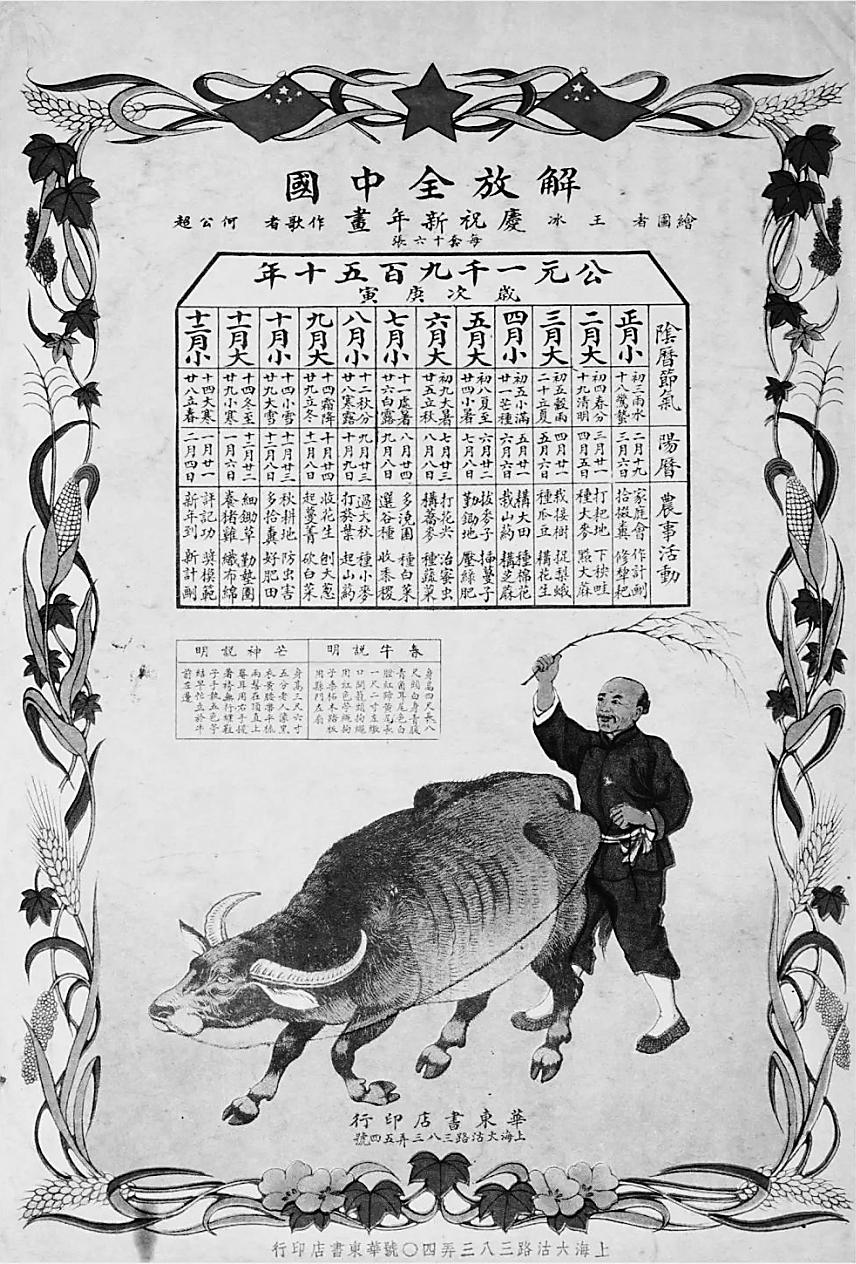 解放全中國
繪圖者 王冰 慶祝新年畫 作歌者 何公超
每套十六張
公元一千九百五十年
歲次庚寅
陰曆節氣 陽曆 農事活動
正月小 初三雨水 二月十九 家庭會 作計劃
十八驚蟄 三月六日 拾糞 修犁耙
二月大 初四春分 三月廿一 打耙地 下秧畦
十九清明 四月五日 種大麥 點大麻
三月大 初五穀雨 四月廿一 栽接樹 捉梨蛾
二十立夏 五月六日 種瓜豆 構花生
四月小 初五小滿 五月廿一 構大田 種棉花
廿一芒種 六月六日 栽山葯 構芝麻
五月大 初八夏至 六月廿二 拔麥子 蔓子
廿四小暑 七月八日 勤鋤地 壓綠肥
六月大 初九大暑 七月廿三 打花尖 治蜜虫
廿五立秋 八月八日 構蕎麥 種蔬菜
七月小 十一處暑 八月廿四 多澆園 種白菜
廿六白露 九月八日 選谷種 收黍稷
八月小 十二秋分 九月廿三 過大秋 種小麥
廿八寒露 十月九日 打葵葉 起山葯
九月大 十四霜降 十月廿四 收花生 刨大葱
廿九立冬 十一月八日 起蔓菁 砍白菜
十月小 十四小雪 十一月廿三 秋耕地 防虫害
廿九大雪 十二月八日 多拾糞 好肥田
十一月大 十四冬至 十二月廿二 細鋤草 勤墊圈
廿九小寒 一月六日 養猪雞 織布綿
十二月小 十四大寒 一月廿一 評記功 獎模範
廿八立春 二月四日 新年到 新計劃
春牛説明
身高四尺長八
尺頭白身青腹
青角耳尾色白
膛紅蹄黃尾長
一尺二寸左繳
口開籠頭拘繩
用紅色苧繩拘
子桑柘木踏板
用縣門左扇
芒神説明
身高三尺六寸
五分老人像黑
衣黃腰帶平梳
兩髻在頂直上
罨耳用右手提
著袴無行纏鞋
子手執五色苧
結早忙立於牛
前左邊
華東書店印行
上海大沽路三八三弄五四號
上海大沽路三八三弄四〇號華東書店印行